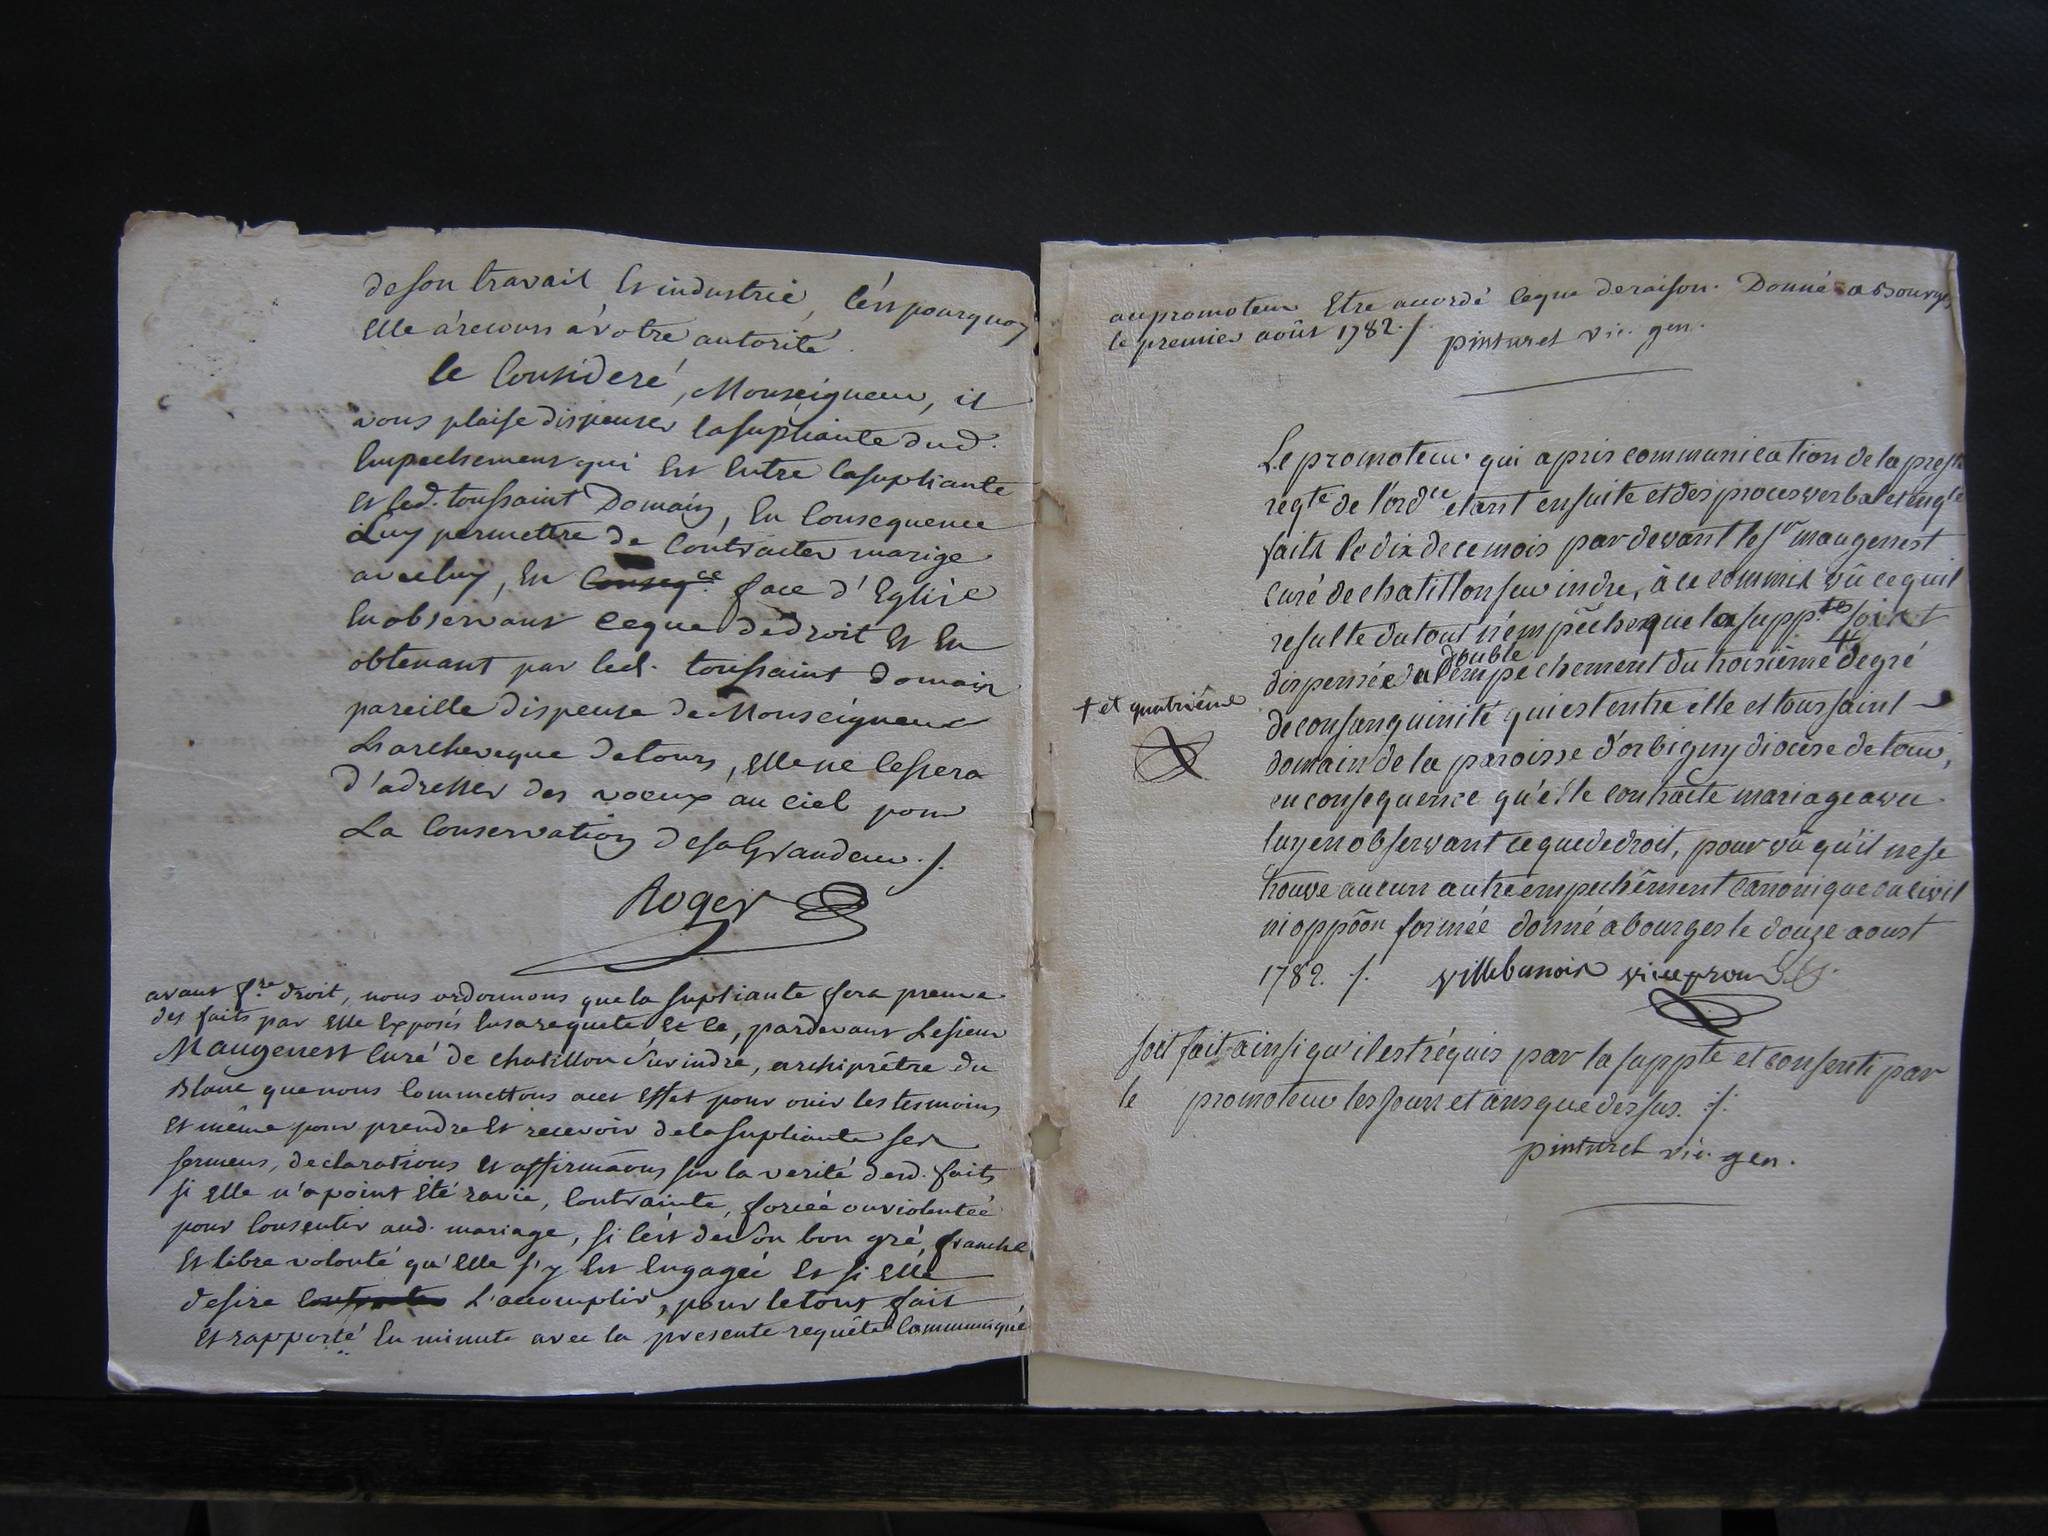 de son travail Et industrie, C'est pourquoy
Elle a recours à votre autorité.
Ce Consideré, Monseigneur, il
vous plaise dispenser la supliante dud.
Empechement qui Est Entre la supliante
Et led. toussaint Domain, En Consequence
Luy permettre de Contracter marige
avec luy, En Conseq.ce face d'Eglise
En observant Ceque de droit Et En
obtenant par led. toussaint domain
pareille dispense de Monseigneur
L'archeveque de tours, Elle ne Cessera
d'adresser des voeux au ciel pour
La Conservation de sa Grandeur ./.
Roger
avant f.re droit, nous ordonnons que la supliante fera preuve
des faits par Elle Exposés En sa requete Et Ce, pardevant Le sieur
Maugenest Curé de chatillon sur indre, archiprêtre du
Blanc que nous Commettons acet Effet pour ouir les tesmoins
Et même pour prendre Et recevoir de la supliante ses
sermens, declarations Et affirmaõns sur la verité desd. faits
si Elle n'a point Eté ravie, Contrainte, forcée ou violentée
pour Consentir aud. mariage, si C'est de son bon gré, franche
Et libre volonté qu'Elle s'y Est Engagée Et si Elle
desire L'accomplir, pour le tout fait
Et rapporté En minute avec la presente requête Communiqué
au promoteur Etre accordé Ceque de raison. Donné a Bourges
le premier août 1782 ./. pinturel vic. gen.
Le promoteur qui a pris communication de la pres.te
reqte de l'ordce etant ensuite et des proces verbal et enq.te
faits le dix de ce mois par devant le sr maugenest
curé de chatillon sur indre, à ce commis vû ce quil
resulte du tout n'empêche que la supp.te soit
dispensée du double empechement du troisième + degré
+ et quatrième
de consanguinité qui est entre elle et toussaint
domain de la paroisse d'orbigny diocese de tours,
en consequence qu'elle contracte mariage avec
luy en observant ce que de droit, pour vû qu'il ne se
trouve aucun autre empechement canonique ou civil
ni oppõon formée donné a bourges le douze aoust
1782. ./. Villebanois vice prom
soit fait ainsi qu'il est réquis par la suppte et consenti par
le promoteur les jour et ans que dessus ./.
pinturel vic. gen.